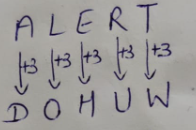 A L E R T
+3 +3 +3 +3 +3
D O H U W